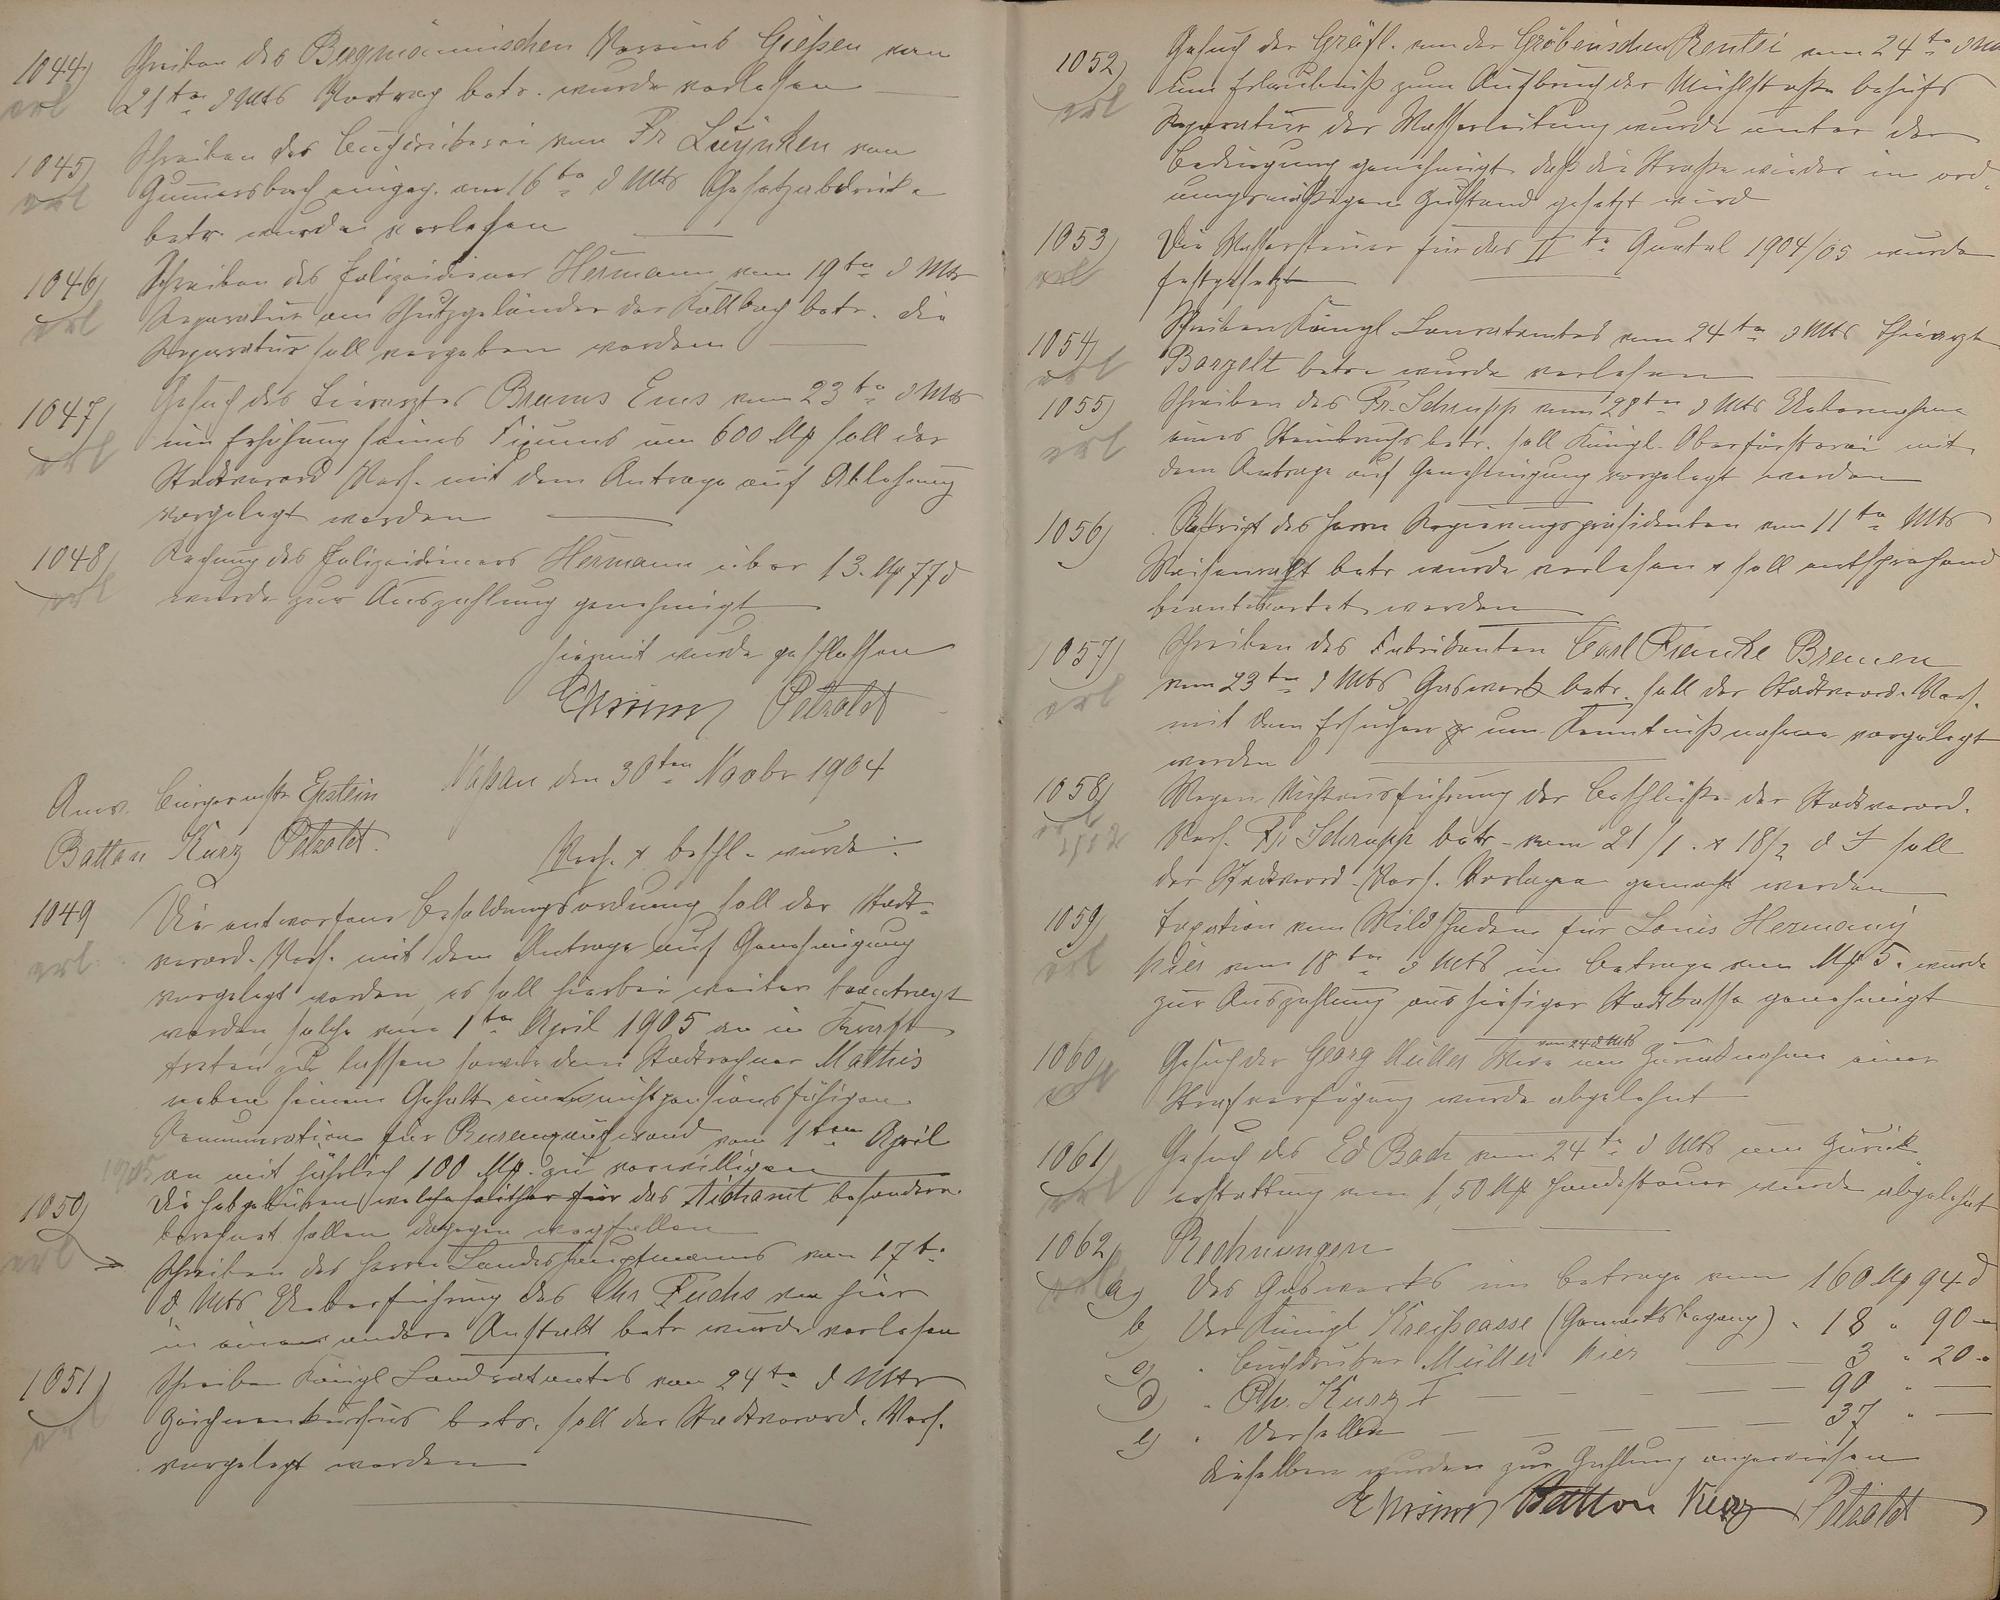 1044) Schreiben des Bergmännischen Vereins Gießen vom
erl 21ten d Mts Vortrag betr. wurde verlesen
1045) Schreiben der Buchdruckerei von Fr Luyken von
erl Gumersbach eingeg. am 16ten d Mts Gesetzabdrücke
betr. wurde verlesen
1046) Schreiben des Polizeidiener Hermann vom 19ten d Mts
erl Reparatur am Schutzgeländer der Kaltbach betr. die
Reparatur soll vergeben werden
1047) Gesuch des Tierarztes Bruns Ems vom 23ten d Mts
erl um Erhöhung seines Fixums um 600 Mk soll der
Stadtverord Vers. mit dem Antrage auf Ablehnung
vorgelegt werden
1048) Rechnung des Polizeidieners Hermann über 13. Mk 77 d
erl wurde zur Auszahlung genehmigt
hiermit wurde geschlossen
Petzoldt
Naßau den 30ten Novbr 1904
Anw. Bürgermstr Epstein
Batton Kurz Petzoldt.
Vors. & beschl. wurde:
1049 Die entworfene Besoldungsordnung soll der Stadt-
erl verord. Vers. mit dem Antrage auf Genehmigung
vorgelegt werden, es soll hierbei weiter beantragt
werden, solche vom 1ten April 1905 an in Kraft
treten zu lassen sowie dem Stadtrechner Mathis
neben seinem Gehalt eine nichtpensionsfähigen
Remuneration für Bureauaufwand vom 1ten April
1905 an mit jährlich 100 Mk. zu verwilligen
Die Hebgebüren welche seither für das Aichamt besonders
berechnet sollen dagegen wegfallen
1050) Schreiben des Herrn Landeshauptmanns vom 17t.
erl d. Mts Ueberführung des Chr Fuchs von hier
in eine andere Anstalt betr wurde verlesen
1051) Schreiben Königl Landratamtes vom 24ten d Mts
erl Zeichnenkursus betr. soll der Stadtverord. Vers.
vorgelegt werden
1052) Gesuch der Gräfl. von der Gröbenschen Rentei vom 24ten d Mts
erl um Erlaubniß zum Aufbruch der Mühlstraße behufs
Reparatur der Wasserleitung wurde unter der
Bedingung genehmigt daß die Straße wieder in ord-
nungsmäßigen Zustand gesetzt wird
1053) Die Wassersteuer für das IIte Quatal 1904/05 wurde
erl festgesetzt
1054) Schreiben Königl Lanratamtes vom 24ten d Mts Thierarzt
erl Barzelt betr wurde verlesen
1055) Schreiben des Fr. Schrupp vom 28ten d Mts Uebernahme
erl eines Steinbruchs betr. soll Königl. Oberförsterei mit
dem Antrage auf Genehmigung vorgelegt werden
1056) Rescript des Herrn Regierungspräsidenten vom 11ten Mts
Waisenrath betr wurde verlesen & soll entsprechend
beantwortet werden
1057) Schreiben des Fabrikanten Carl Francke Bremen
erl vom 23ten d Mts Gaswerk betr. soll der Stadtverord. Vers.
mit dem Ersuchen um Kenntnißnahme vorgelegt
werden
1058) Wegen Nichtausführung der Beschlüße der Stadtverord.
Vers. Fr Schrupp betr. vom 21/1. & 18/2 d J soll
der Stadtverord. Vers. Vorlagen gemacht werden
1059) Taxation von Wildschaden für Louis Hermany
erl hier vom 18ten d Mts im Betrage von Mk 5. wurde
zur Auszahlung aus hiesiger Stadtkasse genehmigt
1060 Gesuch der Georg Müller Wwe vom 24 d Mts um Zurücknahme einer
erl Strafverfügung wurde abgelehnt
1061) Gesuch des Ed Bach vom 24ten d Mts um Zurück-
erl erstattung von 1,50 Mk Hundesteuer wurde abgelehnt
1062) Rechnungen
erl a) Des Gaswerks im Betrage von 160 Mk 94 d
b Der Königl Kreiscasse (Gemarksbegang) " 18 " 90 "
c) " Buchdrucker Müller hier 3 " 20 "
d) " Ph. Kurz I 90 " —
e) " Derselben 37 " —
dieselben wurden zur Zahlung angewiesen
Batton Kurz Petzoldt